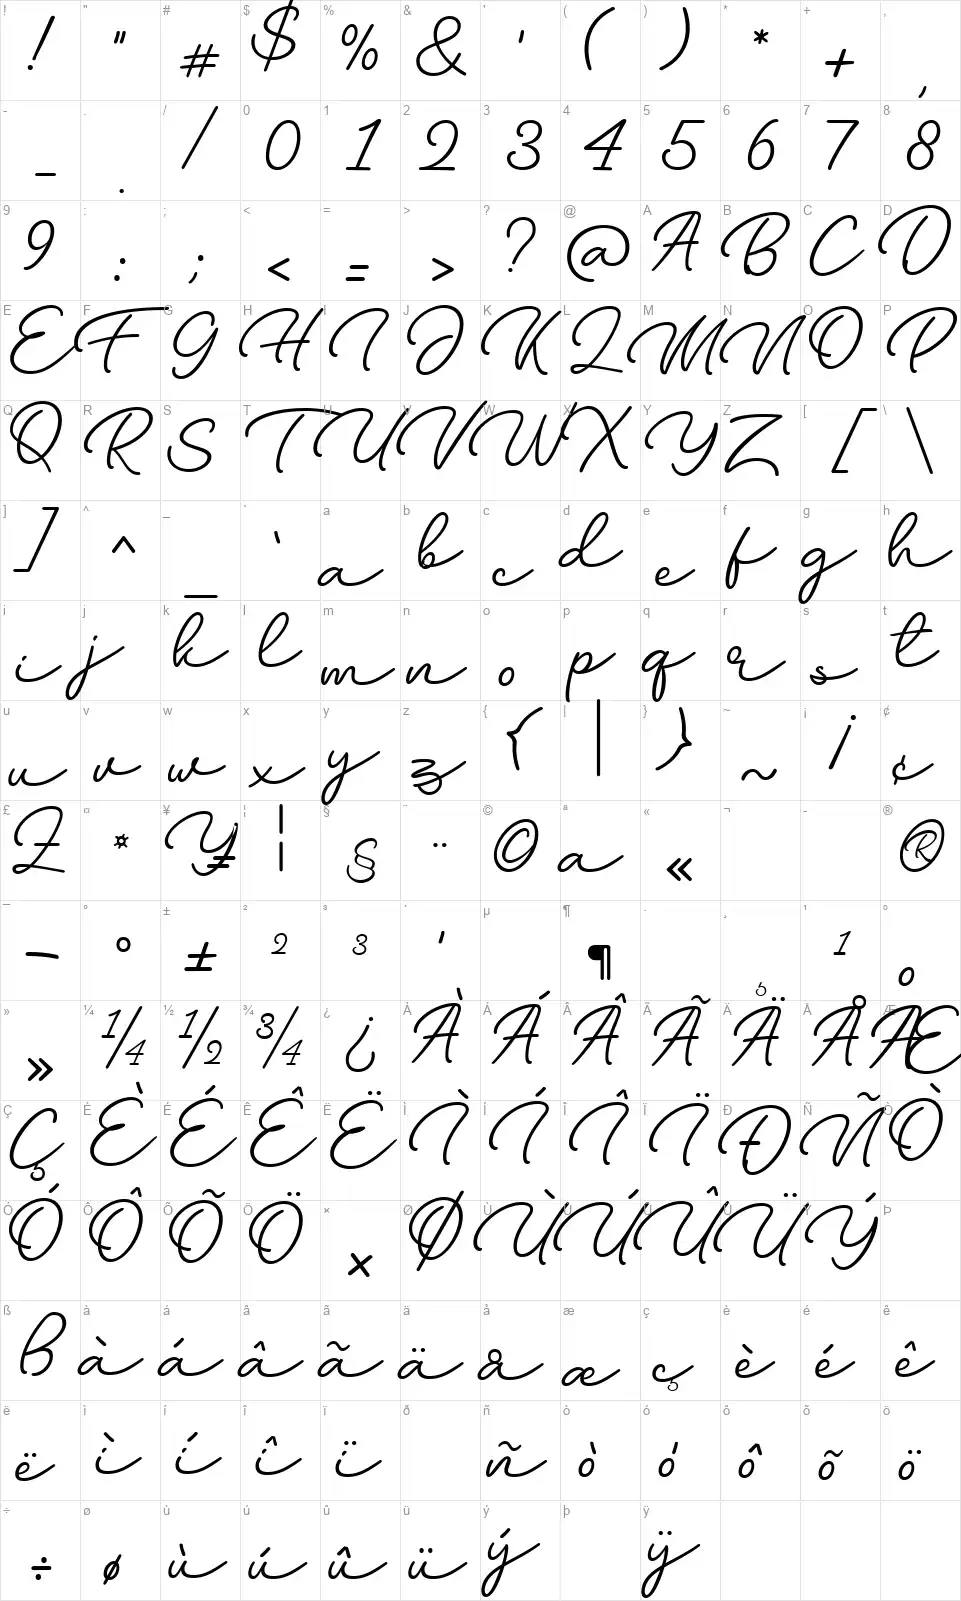 ! " # $ % & ' ( ) * + ,
! " # $ % & ' ( ) * + ,
- . / 0 1 2 3 4 5 6 7 8
- . / 0 1 2 3 4 5 6 7 8
9 : ; < = > ? @ A B C D
9 : ; < = > ? @ A B C D
E F G H I J K L M N O P
E F G H I J K L M N O P
Q R S T U V W X Y Z [ \
Q R S T U V W X Y Z [ \
] ^ _ ` a b c d e f g h
] ^ _ ` a b c d e f g h
i j k l m n o p q r s t
i j k l m n o p q r s t
u v w x y z { | } ~ ¡ ¢
u v w x y z { | } ~ ¡ ¢
£ ¤ ¥ ¦ § ¨ © ª « ¬ - ®
£ ¤ ¥ ¦ § ¨ © ª « ®
¯ ° ± ² ³ ´ µ ¶ · ¸ ¹ º
¯ ° ± ² ³ ´ ¶ ¸ ¹ º
» ¼ ½ ¾ ¿ À Á Â Ã Ä Å Æ
» ¼ ½ ¾ ¿ À Á Â Ã Ä Å Æ
Ç È É Ê Ë Ì Í Î Ï Ð Ñ Ò
Ç È É Ê Ë Ì Í Î Ï Ð Ñ Ò
Ó Ô Õ Ö × Ø Ù Ú Û Ü Ý Þ
Ó Ô Õ Ö × Ø Ù Ú Û Ü Ý
ß à á â ã ä å æ ç è é ê
ß à á â ã ä å æ ç è é ê
ë ì í î ï ð ñ ò ó ô õ ö
ë ì í î ï ñ ò ó ô õ ö
÷ ø ù ú û ü ý þ ÿ
÷ ø ù ú û ü ý ÿ